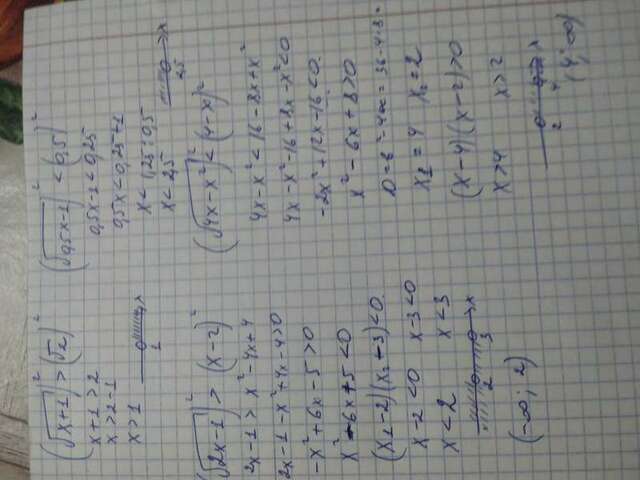 (√x+1)² > (√2)²
x+1 > 2
x > 2-1
x > 1
1 x
(√2x-1)² > (x-2)²
2x-1 > x²-4x+4
2x-1-x²+4x-4>0
-x²+6x-5>0
x²-6x+5<0
(x₁-2)(x₂-3)<0
x-2<0 x-3<0
x<2 x<3
2 3 x
(-∞; 2)
(√0,5x-1)² < (0,5)²
0,5x-1<0,25
0,5x<0,25+1
x<1,25:0,5
x<2,5
2,5 x
(√4x-x²)² < (4-x)²
4x-x²<16-8x+x²
4x-x²-16+8x-x²<0
-2x²+12x-16<0
x²-6x+8>0
D=b²-4ac=36-4·1·8=
x₁=4 x₂=2
(x-4)(x-2)>0
x>4 x>2
2 4 x
(4; ∞)